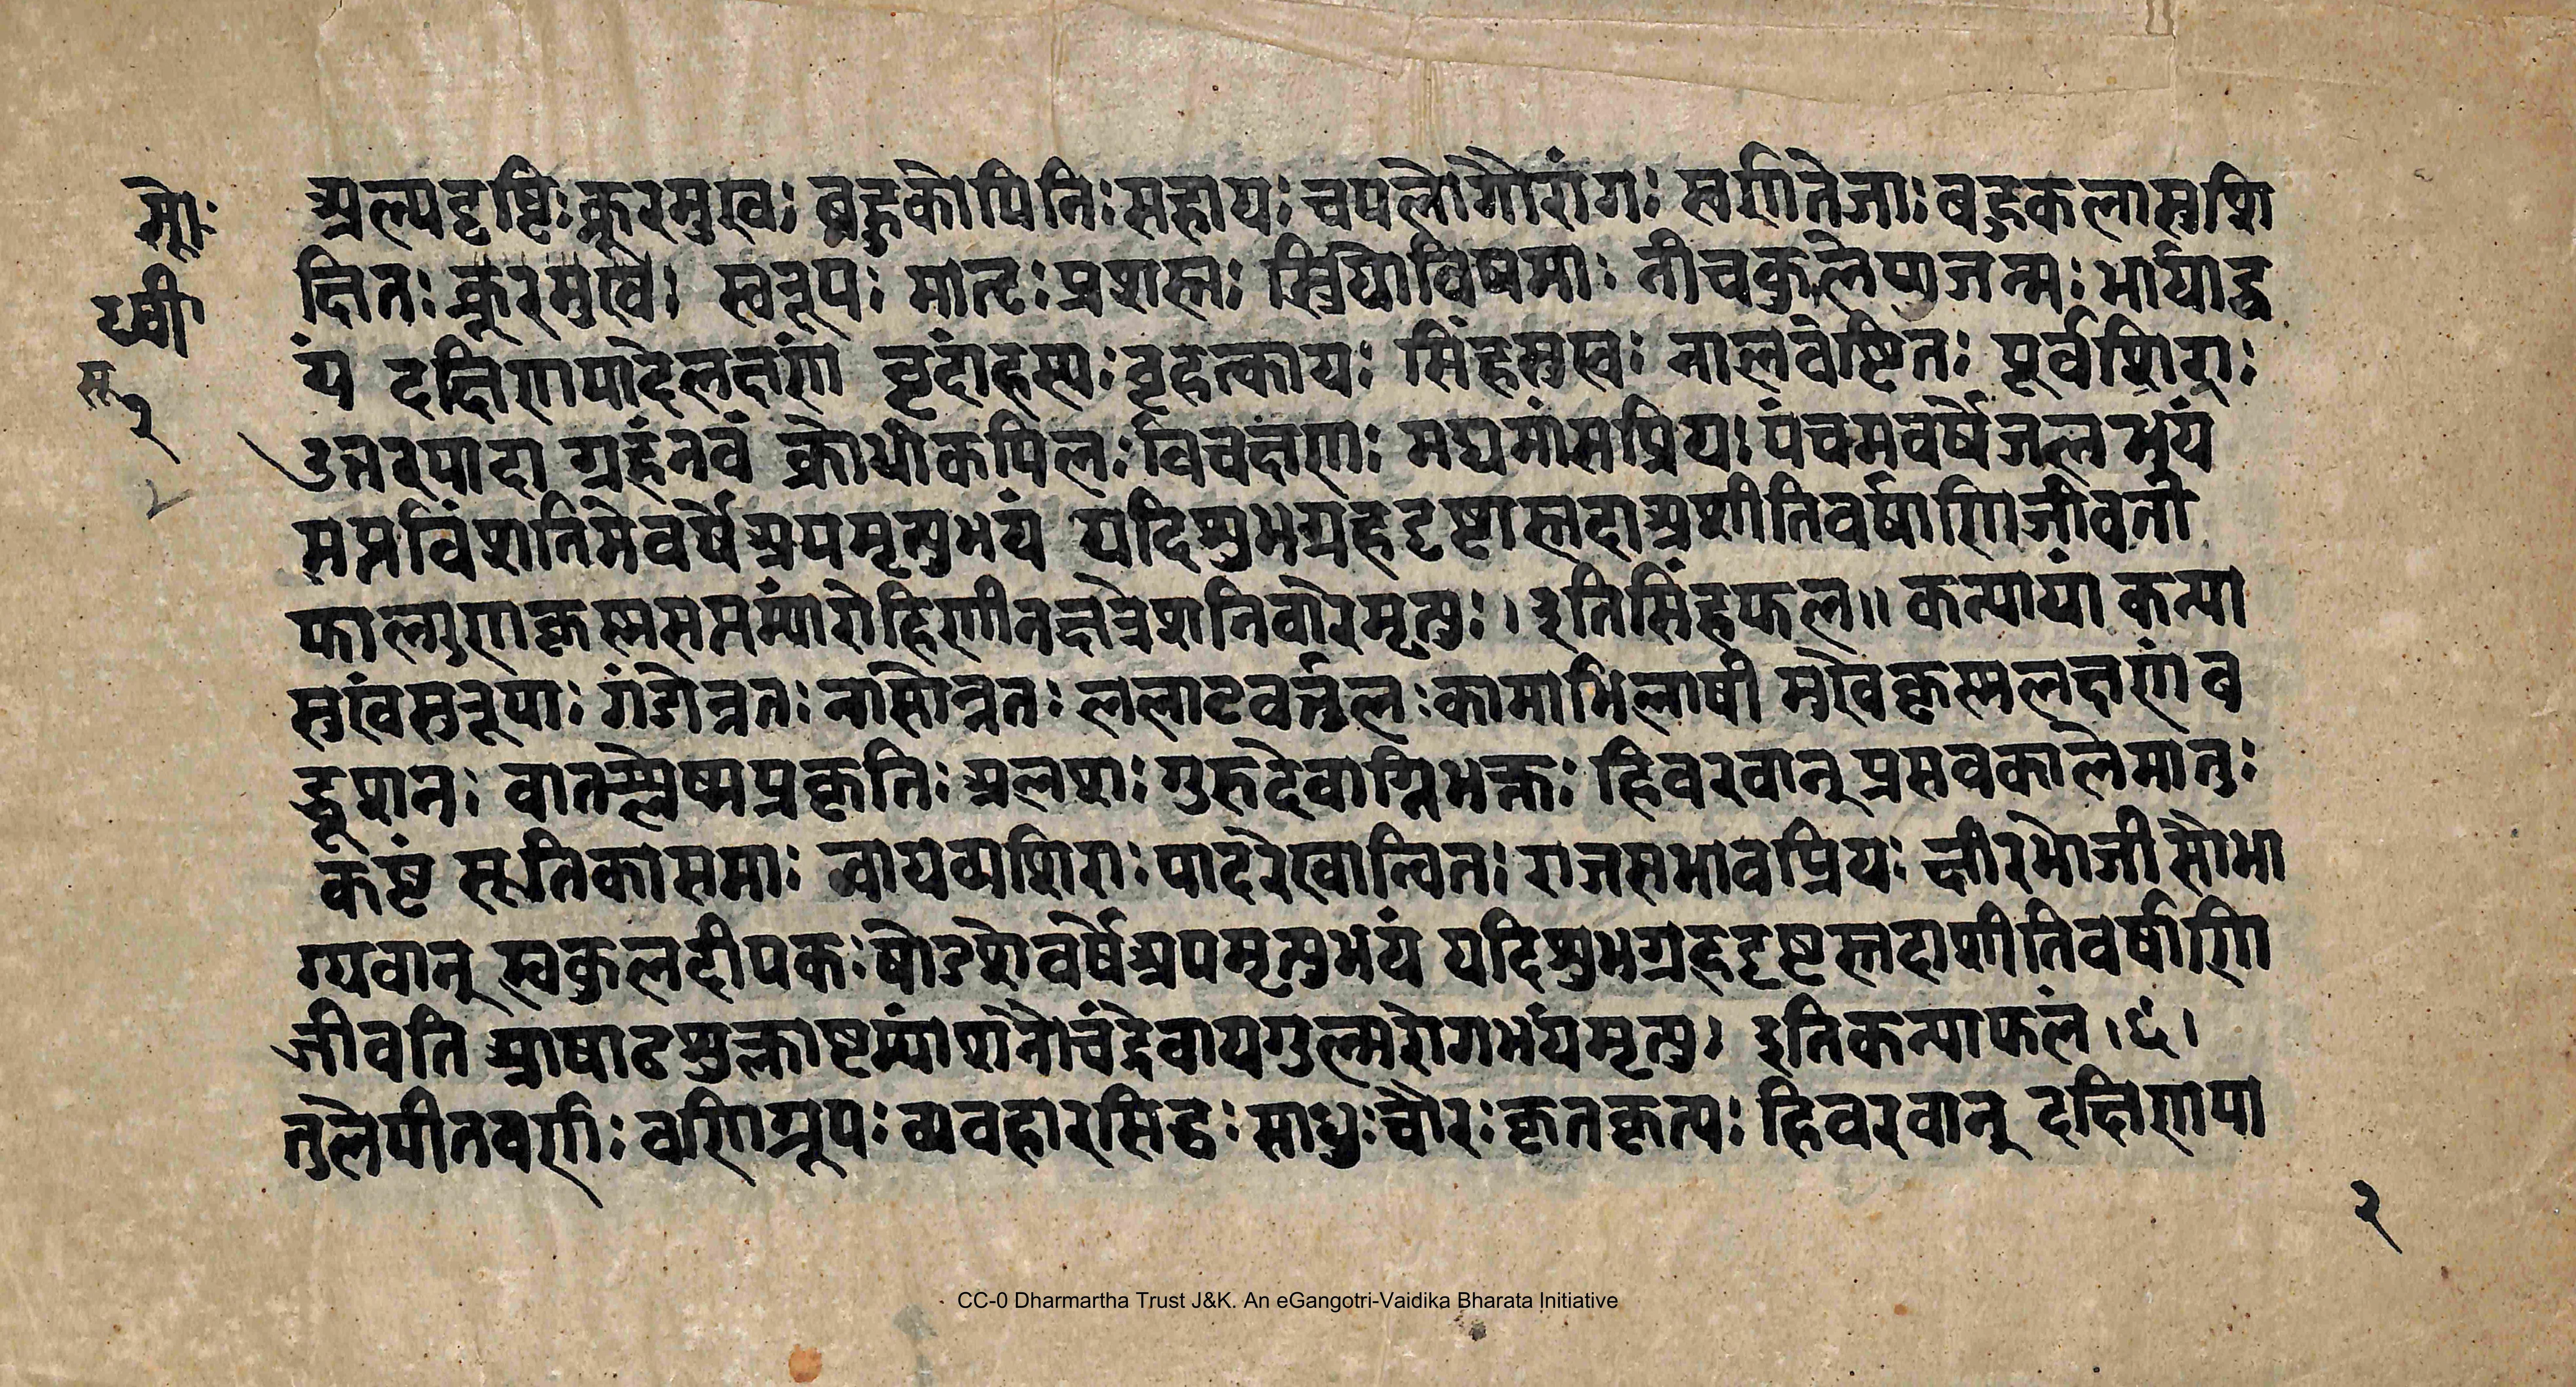 सोः
ष्वी
स
२
अल्पदृष्टिः क्रूरमुखः बहुकोपिनिः सहायः चपलोगौरांगः स्वर्णतेजाः बहुकलासुशि
क्षितः क्रूरमुखः स्वरूपः मातृः प्रशस्तः स्त्रियोविषमाः नीचकुलेषुजन्मः भार्याद्व
यं दक्षिणपादेलक्षणं वृंदांहस्यः वृहत्कायः सिंहमुखः नालवेष्टितः पूर्वशिराः
उत्तरपादा ग्रहंनवं क्रोधीकपिलः विचक्षणः मद्यमांसप्रियः पंचमवर्षेजलभयं
सप्तविंशतिमेवर्षेअपमृत्युभयं यदिशुभग्रहदृष्टास्तदाअशीतिवर्षाणिजीवती
फाल्गुणकृस्नसप्तम्यांरोहिणीनक्षत्रेशनिवारेमृत्युः। इतिसिंहफल॥ कन्यायां कन्या
मुखंसुरूपाः गंडोन्नतः नासोन्नतः ललाटवर्त्तुलः कामाभिलाषी मुखेकृस्नलक्षणं ब
द्धूपानः वातश्लेष्मप्रकृतिः अलशः गुरुदेवाग्निभक्तः हिवरवान् प्रसवकालेमातुः
कष्टं सूतिकासमाः वायव्यशिराः पादरेखान्वितः राजसभावप्रियः क्षीरभोजी सौभा
ग्यवान् स्वकुलदीपकः षोडशेवर्षेअपमृत्युभयं यदिशुभग्रहदृष्टस्तदाशीतिवर्षाणि
जीवति आषाढशुक्लाष्टम्यांशनौचंद्रेवायगुल्मरोगभयंमृत्युः इतिकन्याफलं।६।
तुलेपीतवर्णः वणिग्रूपः व्यवहारसिद्धः साधुः चौरः कृतकृत्यः हिवरवान् दक्षिणपा
२
CC-0 Dharmartha Trust J&K. An eGangotri-Vaidika Bharata Initiative